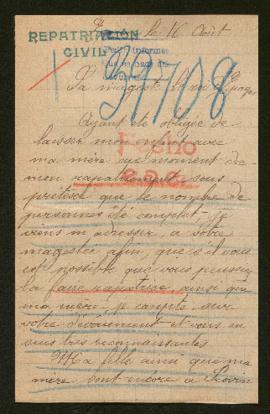 le 16 Août
REPATRIACIÓN
CIVIL
Sa majesté le roi
Ayant été obligée de
laisser mon enfant avec
ma mère au moment de
mon rapatriement sous
prétexte que le nombre de
personnes été complet je
viens m'adresser a votre
magesté afin que s'il vous
est possible que vous puissiez
la faire rapatriée ainsi que
ma mère, je compte sur
votre dévouement et vous en
suis très reconnaissante
Ma fille ainsi que ma
mère sont encore a